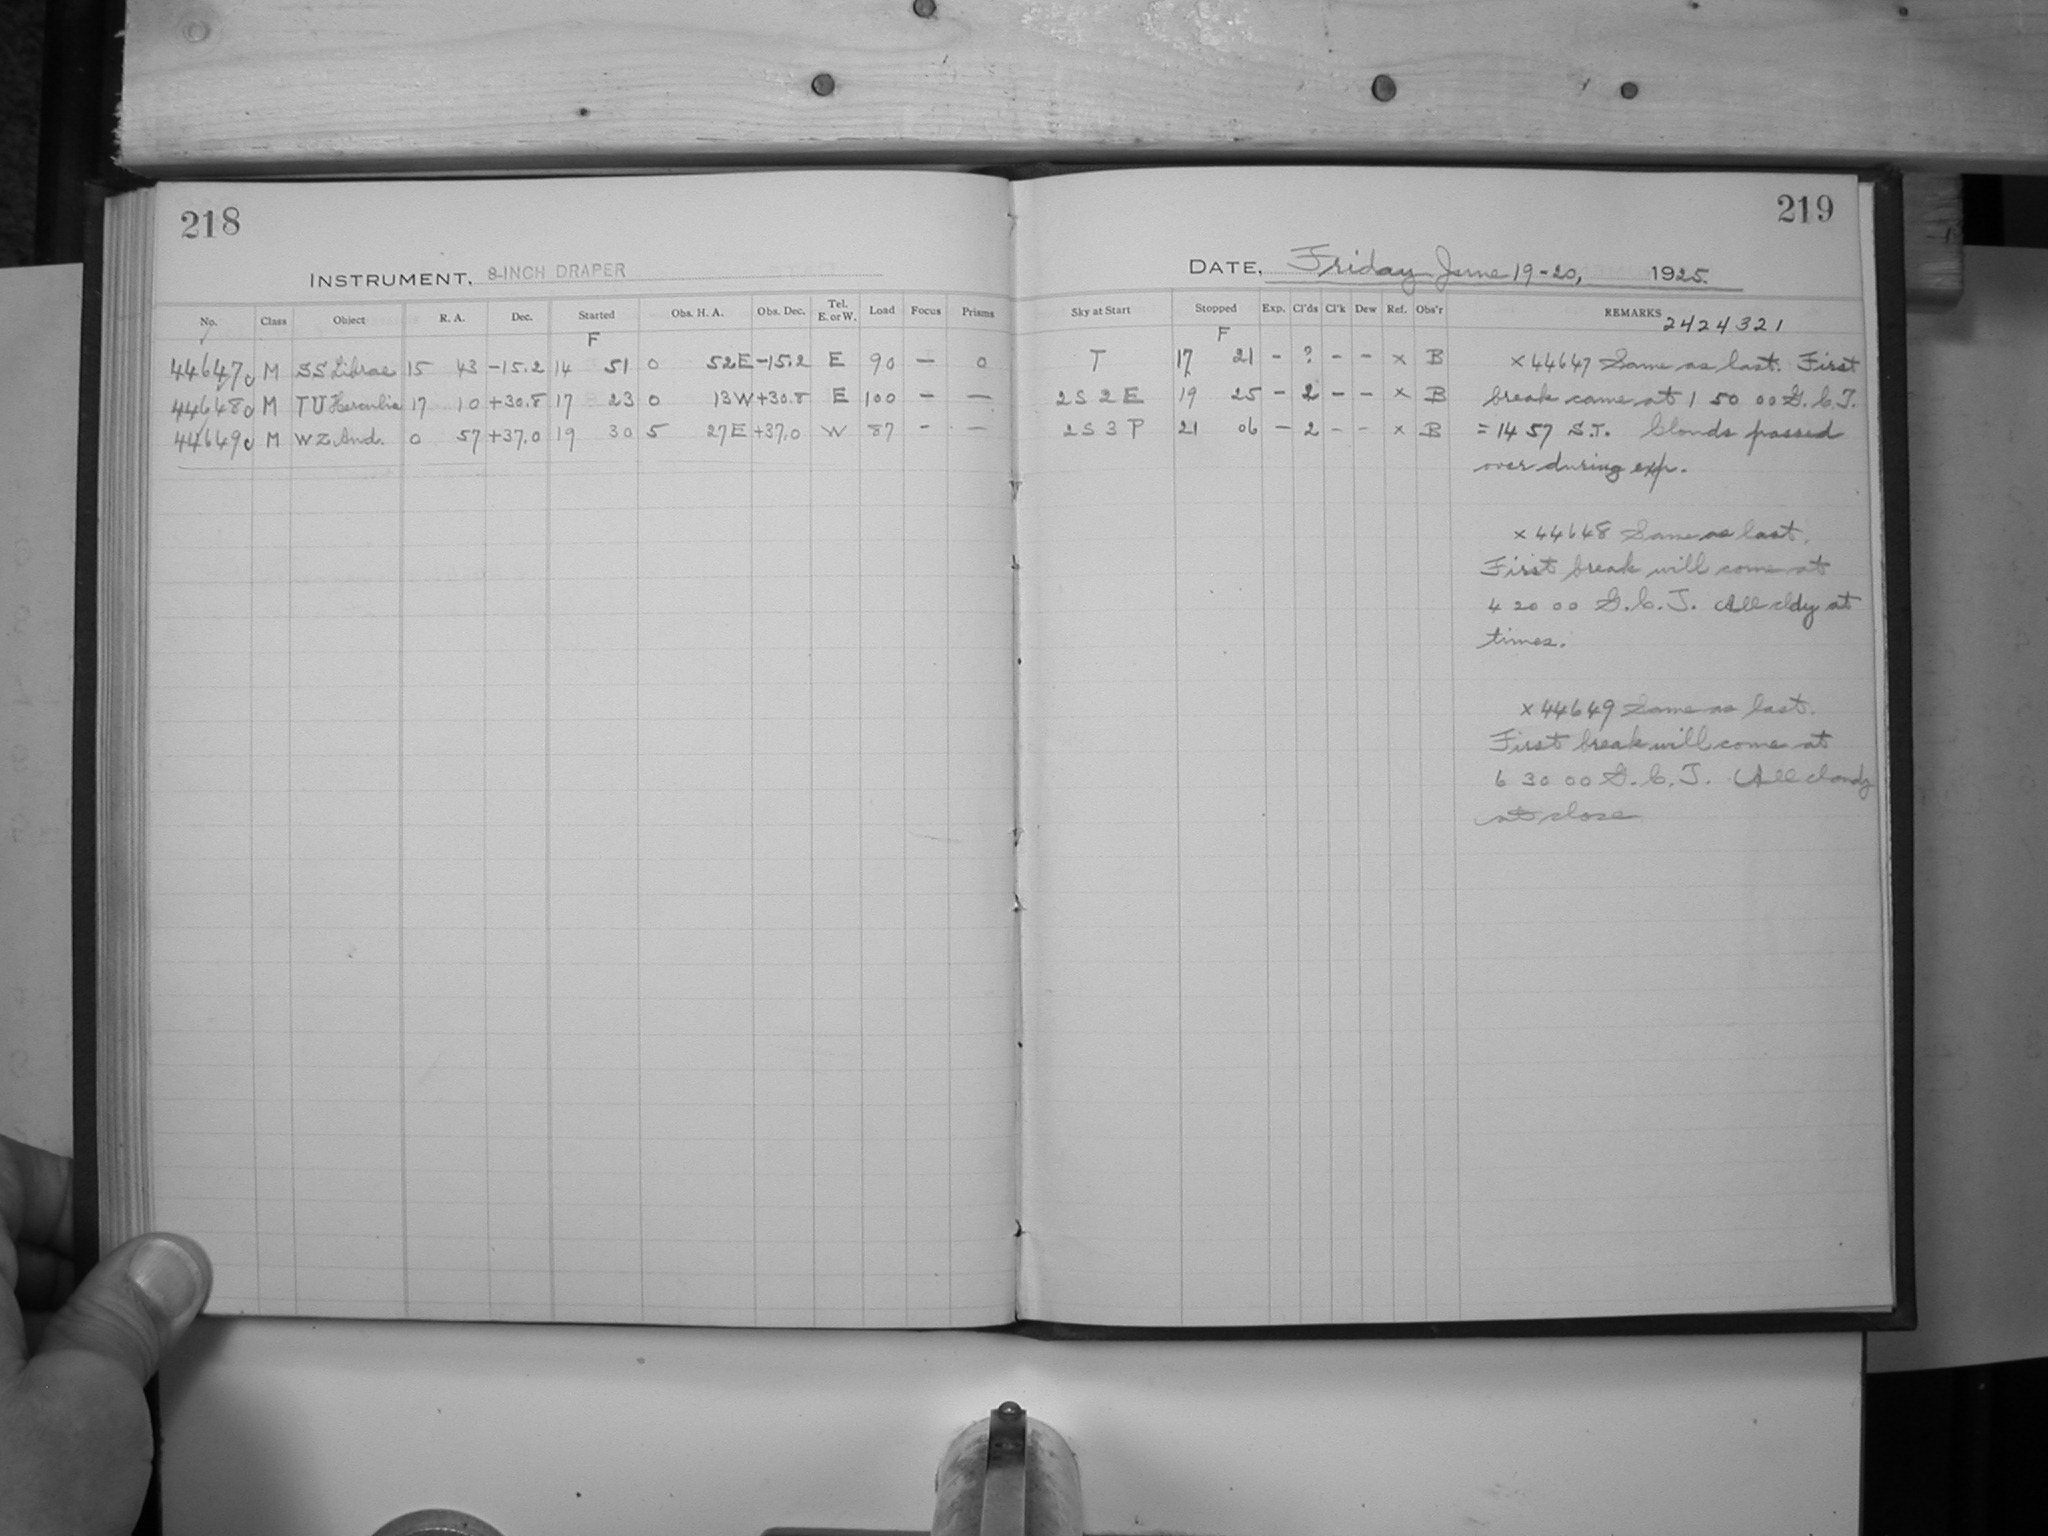 218
INSTRUMENT, 8-INCH DRAPER
No. Class Object R. A. Dec. Started Obs. H. A. Obs. Dec. Tel. E. or W. Load Focus Prisms
F
44647 M SS Librae 15 43 -15.2 14 51 0 52E -15.2 E 90 — 0
44648 M TU Herculis 17 10 +30.8 17 23 0 13W +30.8 E 100 — —
44649 M WZ And. 0 57 +37.0 19 30 5 27E +37.0 W 87 - —
219
DATE, Friday June 19-20, 1925.
Sky at Start Stopped Exp. Cl'ds Cl'k Dew Ref. Obs'r REMARKS 2424321
F
T 17 21 - ? - - x B
2S 2 E 19 25 - 2 - - x B
2S 3 P 21 06 - 2 - - x B
x 44647 Same as last. First
break came at 1 50 00 G.C.T.
= 14 57 S.T. Clouds passed
over during exp.
x 44648 Same as last.
First break will come at
4 20 00 G.C.T. All cldy at
times.
x 44649 Same as last.
First break will come at
6 30 00 G.C.T. All cloudy
at close